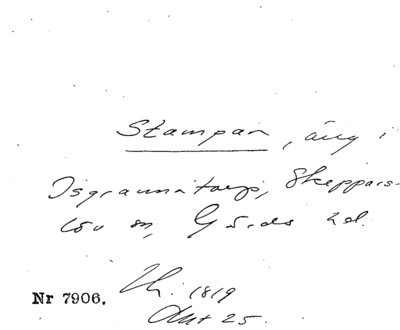 Stampan, äng i
Isgrannatorp, Skeppars-
löv sn, Gärds hd.
Nr 7906. 1819
Akt 25.